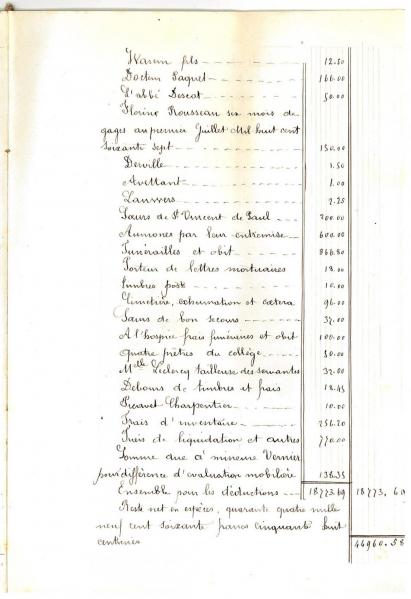 Warein fils 12.50
Docteur Paquet 166.00
L'abbé Descat 50.00
Florine Rousseau ses mois de
gages au premier Juillet Mil huit cent
soixante sept 150.00
Derville 1.50
Avettant 1.00
Lauwers 2.25
Sœurs de St Vincent de Paul 200.00
Aumônes par leur entremise 600.00
Funérailles et obit 866.80
Porteur de lettres mortuaires 18.00
timbres poste 10.00
Cimetière, exhumation et cætera 96.00
Sœurs de bon secours 37.00
A l'hospice frais funéraires et obit 100.00
quatre prêtres du collège 50.00
Melle Leclercq tailleuse des servantes 32.00
Débours de timbres et frais 18.45
Picavet Charpentier 10.00
Frais d'inventaire 256.20
Frais de liquidation et autres 770.00
Somme due à mineure Vernier
pour différence d'évaluation mobilière 138.35
Ensemble pour les déductions 18773.69 18773.69
Reste net en espèces, quarante quatre mille
neuf cent soixante francs cinquante huit
centimes 44960.58